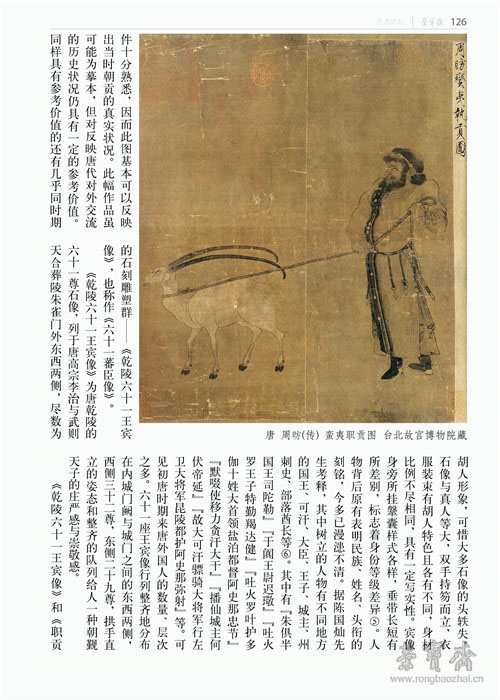 艺术论坛 | 荣宝斋 126
周昉蠻夷執貢圖
唐 周昉(传) 蛮夷职贡图 台北故宫博物院藏
件十分熟悉，因而此图基本可以反映
出当时朝贡的真实状况。此幅作品虽
可能为摹本，但对反映唐代对外交流
的历史状况仍具有一定的参考价值。
同样具有参考价值的还有几乎同时期
的石刻雕塑群——《乾陵六十一王宾
像》，也称作《六十一蕃臣像》。
《乾陵六十一王宾像》为唐乾陵的
六十一尊石像，列于唐高宗李治与武则
天合葬陵朱雀门外东西两侧，尽数为
胡人形象，可惜大多石像的头轶失。
石像与真人等大，双手持笏而立，衣
服装束有胡人特色且各有不同，身材
比例不尽相同，具有一定写实性。宾像
身旁所挂鞶囊样式各样，垂带长短有
所差别，标志着身份等级差异⑤。人
物背后原有表明民族、姓名、头衔的
刻铭，今多已漫漶不清。据陈国灿先
生考释，其中树立的人物有不同地方
的国王、可汗、大臣、王子、城主、州
刺史、部落酋长等⑥。其中有『朱俱半
国王司陀勒』『于阗王尉迟璥』『吐火
罗王子特勤羯达健』『吐火罗叶护多
伽十姓大首领盐泊都督阿史那忠节』
『默啜使移力贪汗大干』『播仙城主何
伏帝延』『故大可汗骠骑大将军行左
卫大将军昆陵都护阿史那弥射』等。可
见初唐时期来唐外国人的数量、层次
之多。六十一座王宾像行列整齐地分布
在内城门阙与城门之间的东西两侧，
西侧三十二尊，东侧二十九尊，拱手直
立的姿态和整齐的队列给人一种朝觐
天子的庄严感与崇敬感。
《乾陵六十一王宾像》和《职贡
荣宝斋
www.rongbaozhai.cn